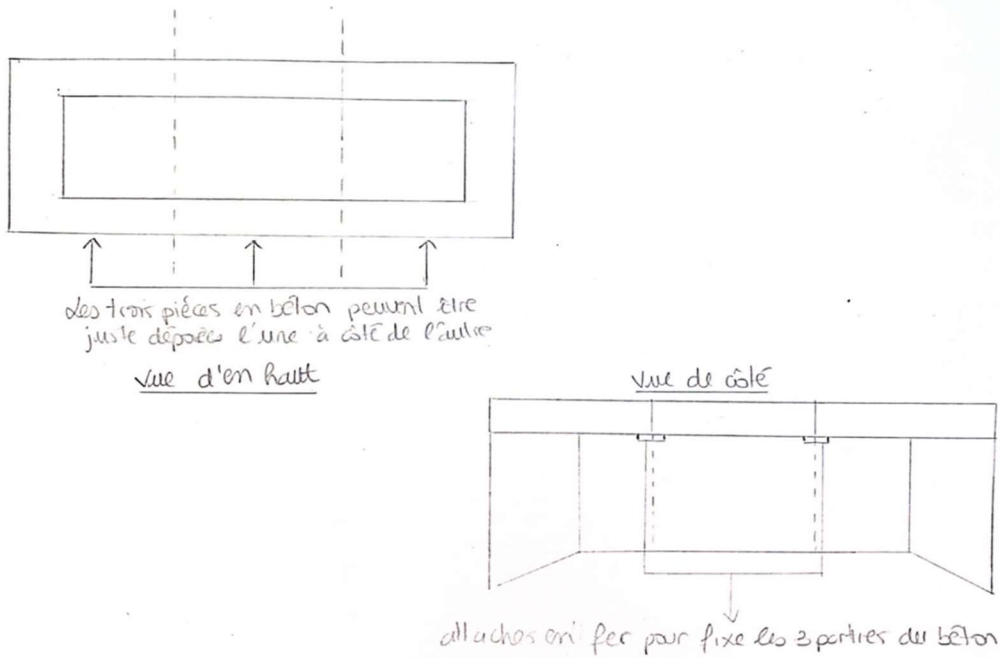 Les trois pièces en béton peuvent être
juste déposées l'une à côté de l'autre
vue d'en hautt
vue de côté
attaches en fer pour fixe les 3 parties du béton